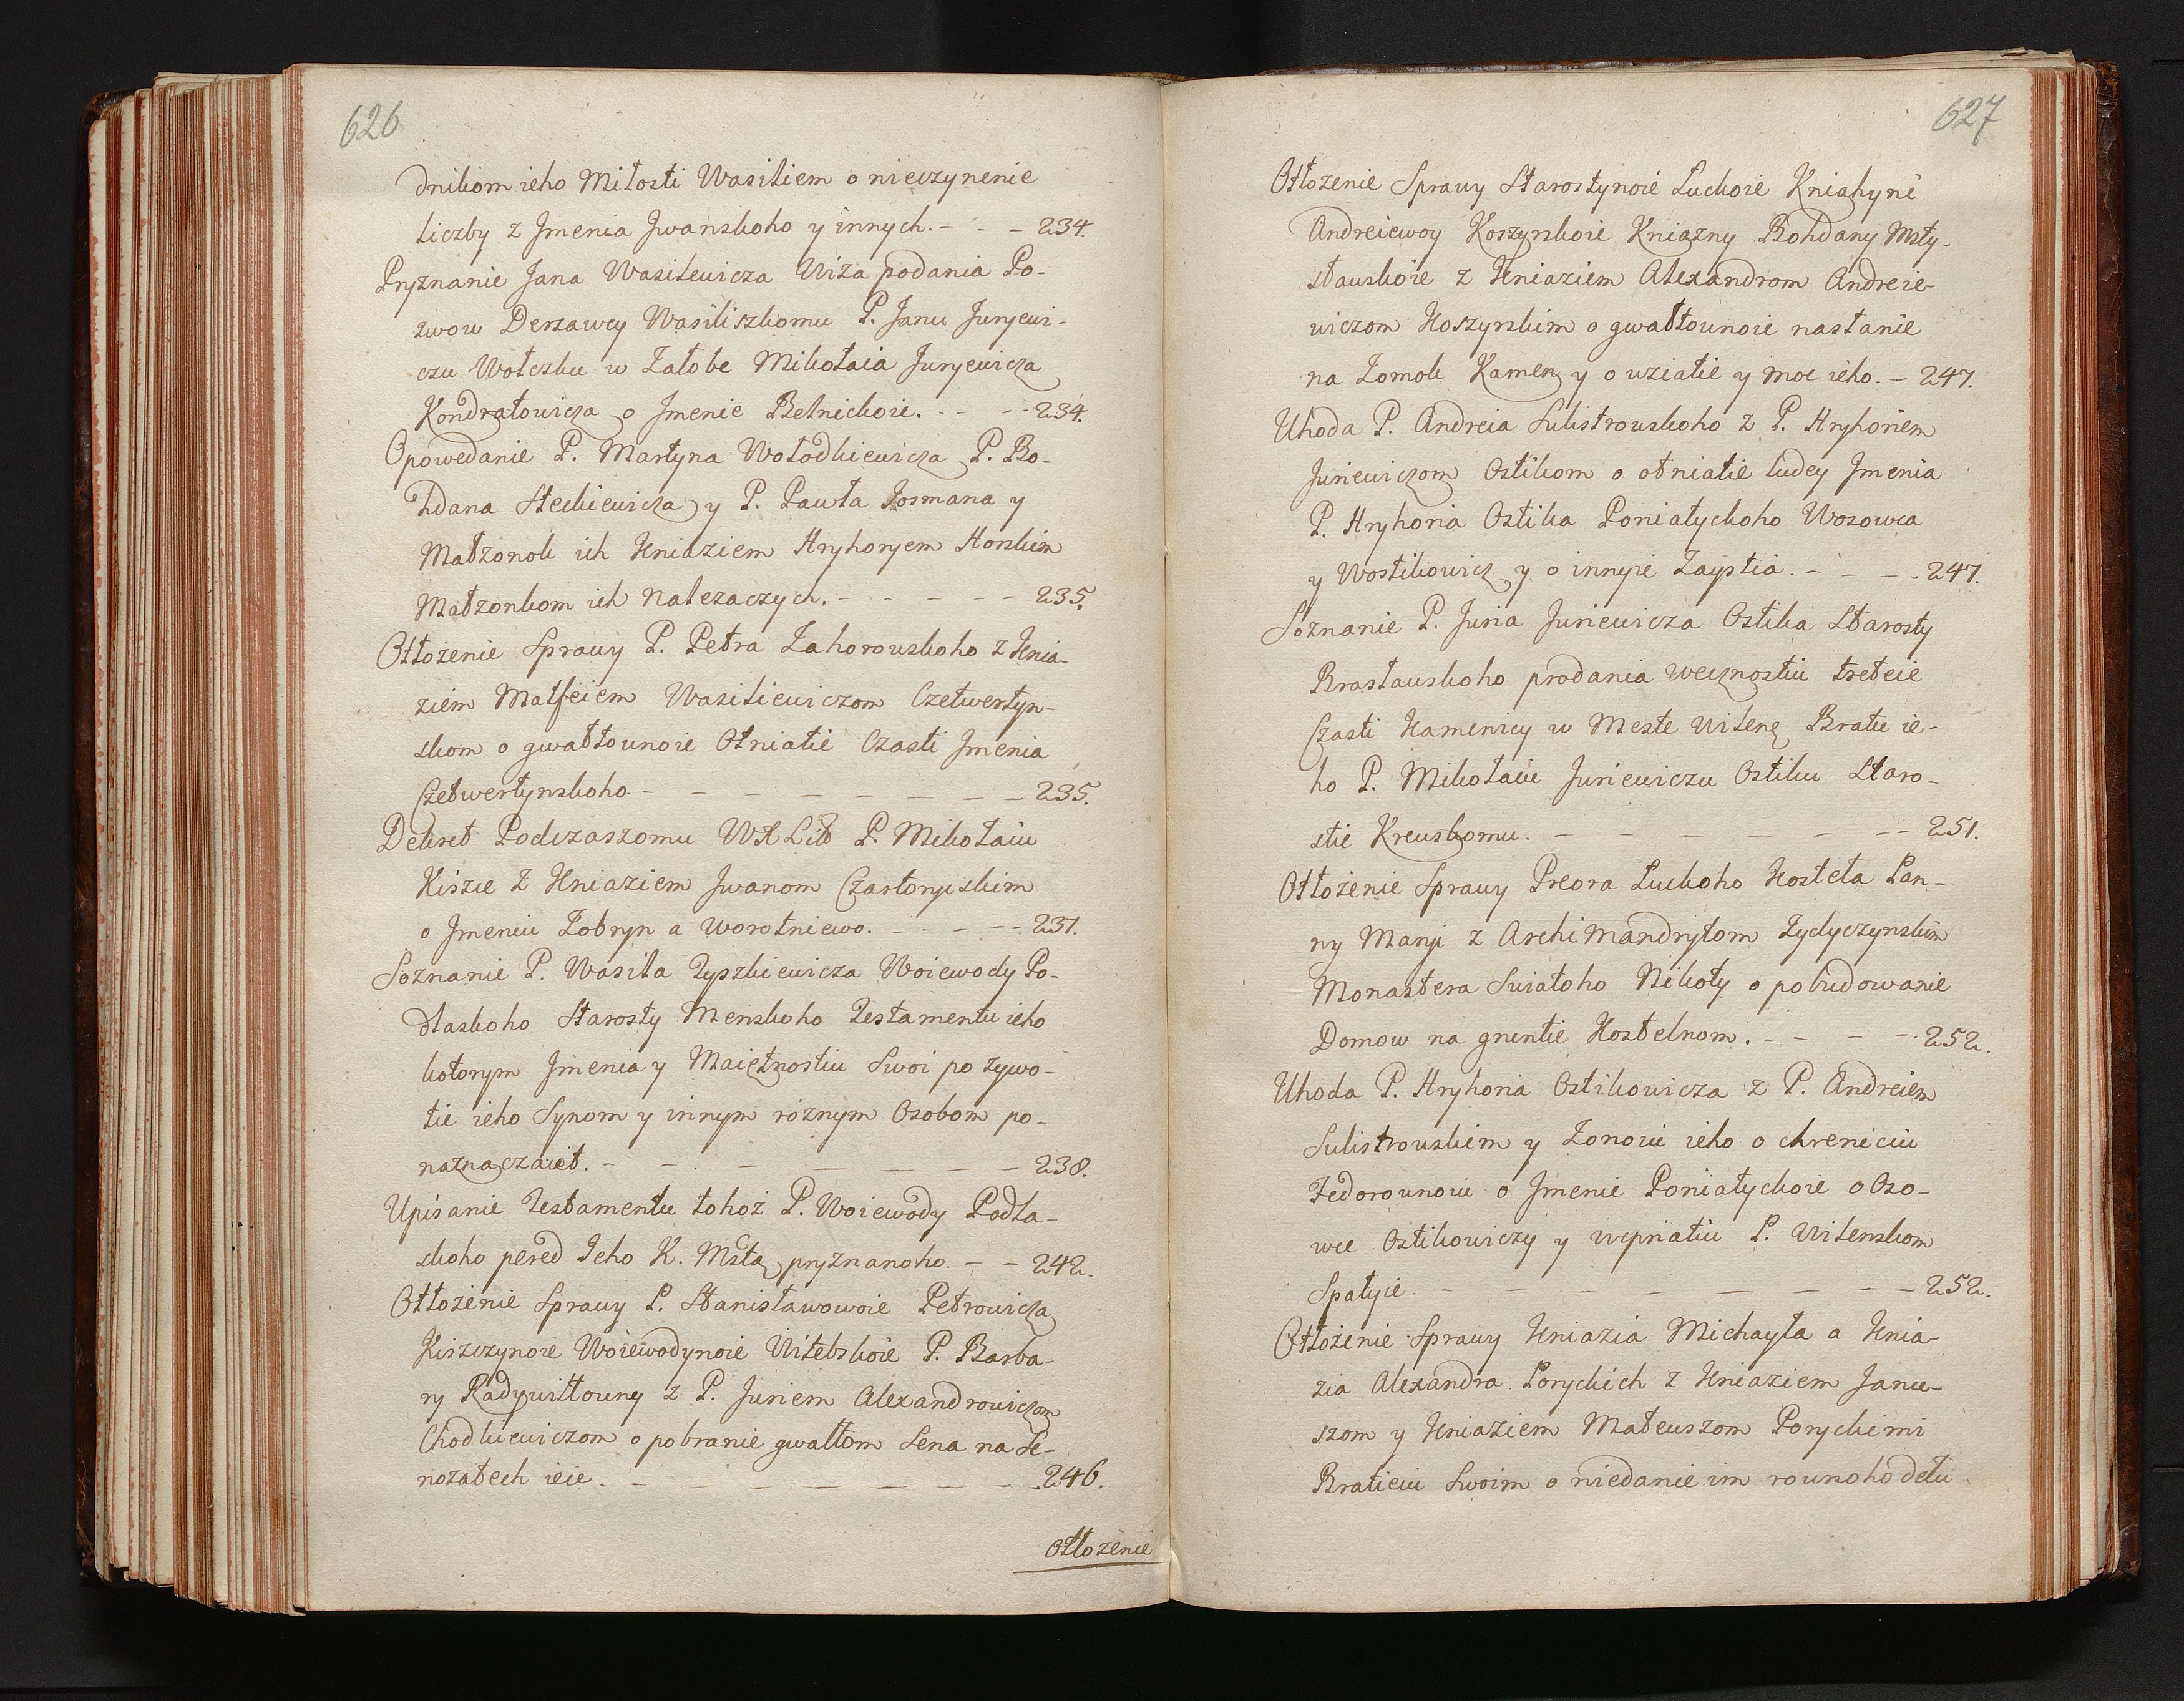 626
dnikom ieho Miłosti Wasiliem o nieczynenie
liczby z Jmenia Jwanskoho y innych. - - - 234.
Pryznanie Jana Wasilewicza Wiża podania Po-
zwow Derzawcy Wasiliszkomu P. Janu Juryewi-
czu Wołczku w Załobe Mikołaia Juryewicza
Kondratowicza o Jmenie Belnickoie. - - - 234.
Opowedanie P. Martyna Wołodkiewicza P. Bo-
hdana Steckiewicza y P. Pawła Josmana y
Małżonok ich Kniaziem Hryhoryem Horskim
Małżonkom ich Należaczych. - - - - - 235.
Otłożenie Sprawy P. Petra Zahorowskoho z Knia-
ziem Matfeiem Wasiliewiczom Czetwertyn-
skom o gwałtownoie Otniatie Czasti Jmenia
Czetwertynskoho - - - - - - - - 235.
Dekret Podczaszomu WXLit P. Mikołaiu
Kiszce z Kniaziem Jwanom Czartoryiskim
o Jmeniu Zobryn a Worotniewo. - - - - 237.
Soznanie P. Wasila Tyszkiewicza Woiewody Po-
dlaskoho Starosty Menskoho Testamentu ieho
kotorym Jmenia y Maiętnostiu Swoi po żywo-
tie ieho Synom y innym roznym Osobom po-
naznaczaiet. - - - - - - - - 238.
Upisanie Testamentu tohoż P. Woiewody Podla-
skoho pered Jeho K. Mstą pryznanoho. - - 242.
Otłożenie Sprawy P. Stanisławowoie Petrowicza
Kiszczynoie Woiewodynoie Witebskoie P. Barba-
ry Radywiłłowny z P. Juriem Alexandrowiczom
Chodkiewiczom o pobranie gwałtom Sena na Se-
nożatech ieie. - - - - - - - - 246.
Otłożenie
627
Otłożenie Sprawy Starostynoie Luckoie Kniahyni
Andreiewoy Koszyrskoie Kniażny Bohdany Msty-
sławskoie z Kniaziem Alexandrom Andreie-
wiczom Koszyrskim o gwałtownoie nastanie
na Zomok Kamen y o wziatie y moc ieho. - 247.
Uhoda P. Andreia Sulistrowskoho z P. Hryhoriem
Juriewiczom Ostikom o otniatie ludey Jmenia
P. Hryhoria Ostika Poniatyckoho Wosowca
y Wostikowicz y o innyie Zaystia. - - - - 247.
Soznanie P. Juria Juriewicza Ostika Starosty
Brasławskoho prodania wecznostiu treteie
Czasti Kamenicy w Meste Wilene Bratu ie-
ho P. Mikołaiu Juriewiczu Ostiku Staro-
stie Krewskomu. - - - - - - - 251.
Otłożenie Sprawy Preora Luckoho Kosteła Pan-
ny Maryi z Archimandrytom Żydyczynskim
Monastera Swiatoho Nikoły o pobudowanie
Domow na gruntie Kostelnom. - - - - 252.
Uhoda P. Hryhoria Ostikowicza z P. Andreiem
Sulistrowskim y Żonoiu ieho o chreniciu
Fedorownoiu o Jmenie Poniatyckoie o Oso-
wce Ostikowiczy y wepriatiu P. Wilenskom
Spatyie. - - - - - - - - - 252.
Otłożenie Sprawy Kniazia Michayła a Knia-
zia Alexandra Poryckich z Kniaziem Janu-
szom y Kniaziem Mateuszom Poryckimi
Bratieiu Swoim o niedanie im rownoho dełu